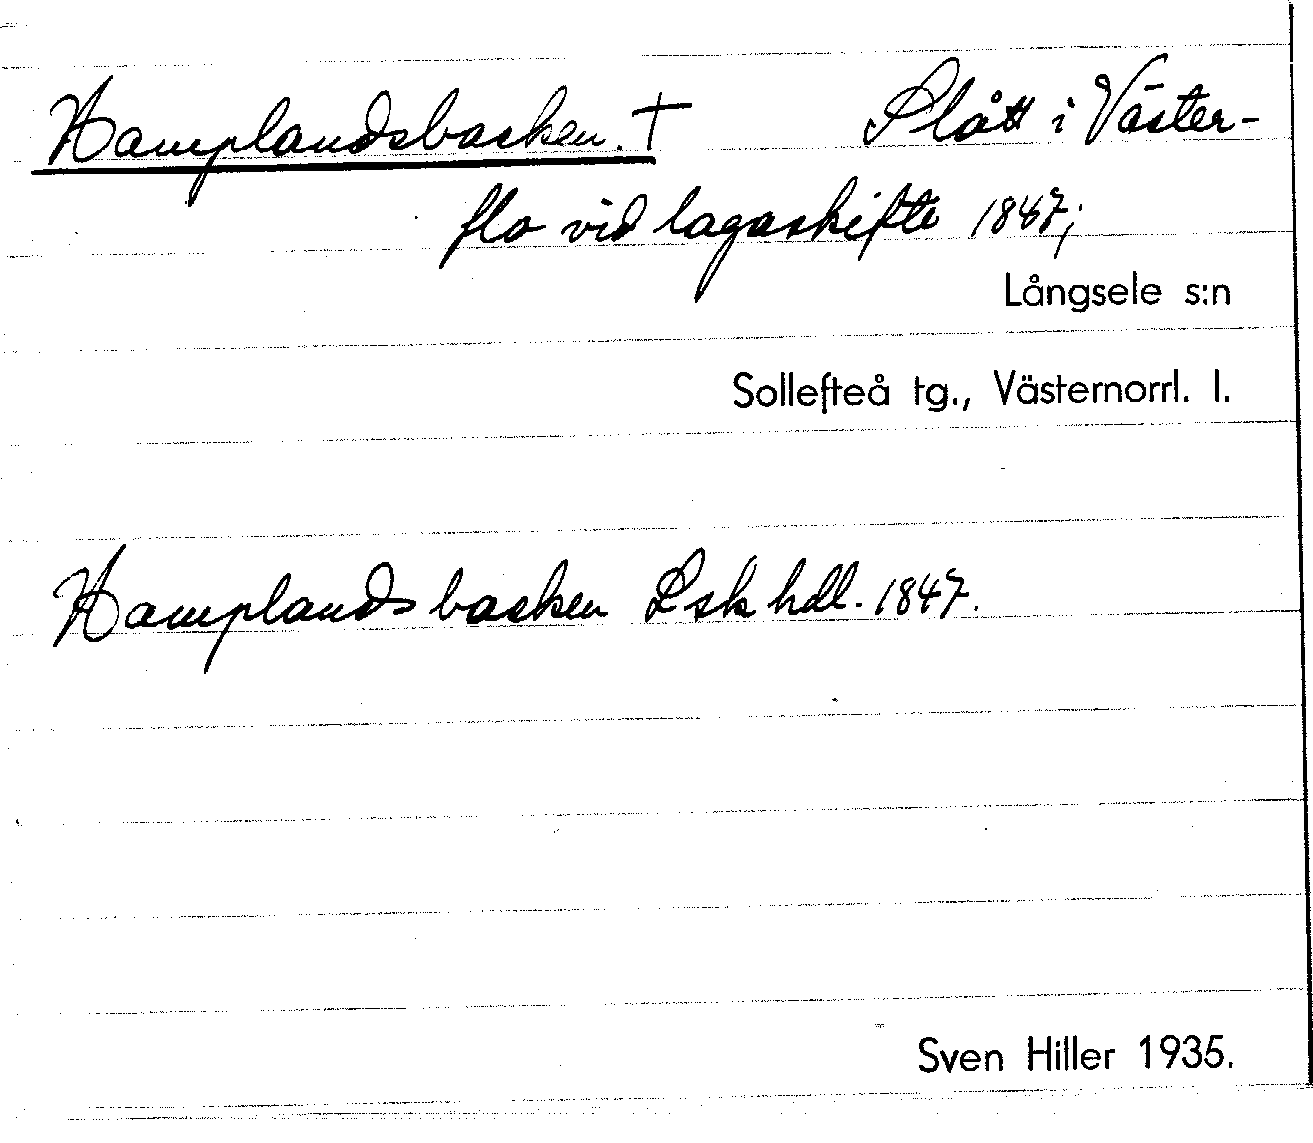 Hamplandsbacken. † Slått i Väster-
flo vid lagaskifte 1847;
Långsele s:n
Sollefteå tg., Västernorrl. l.
Hamplandsbacken Lskhdl. 1847.
Sven Hiller 1935.